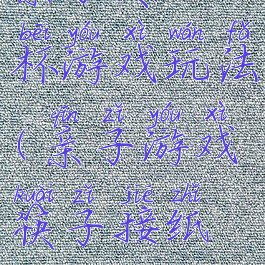 bēi yóu xì wán fǎ
杯游戏玩法
qīn zǐ yóu xì
(亲子游戏
kuài zǐ jiē zhǐ
筷子接纸